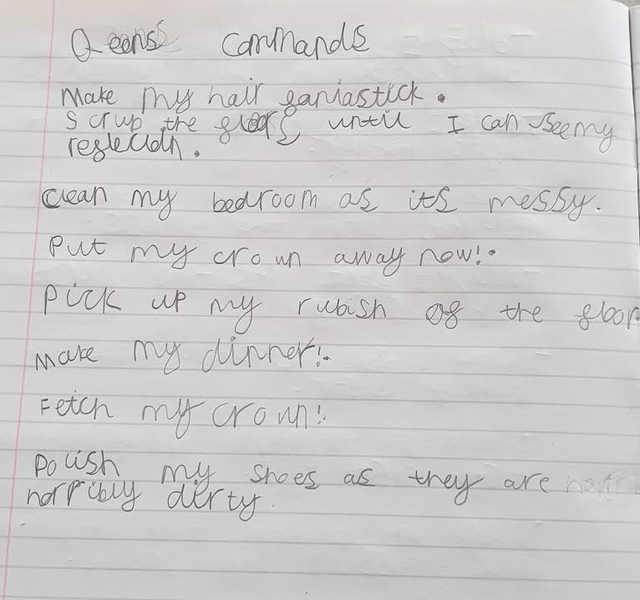 Qeens Commands
Make my hair fantastick.
Scrub the floors until I can see my
reflection.
Clean my bedroom as its messy.
Put my crown away now!.
Pick up my rubish of the floor
Make my dinner!.
Fetch my crown!.
Polish my shoes as they are
horribly dirty.